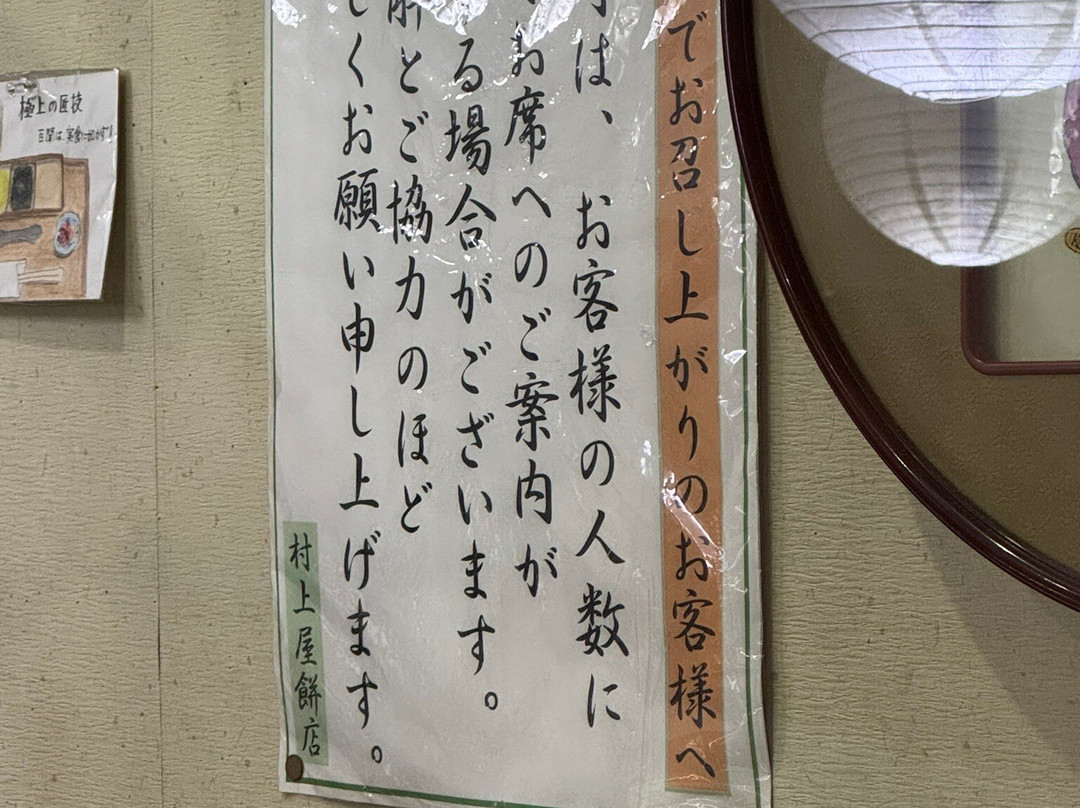 でお召し上がりのお客様へ
は、お客様の人数に
お席へのご案内が
る場合がございます。
解とご協力のほど
しくお願い申し上げます。
村上屋餅店
極上の匠技